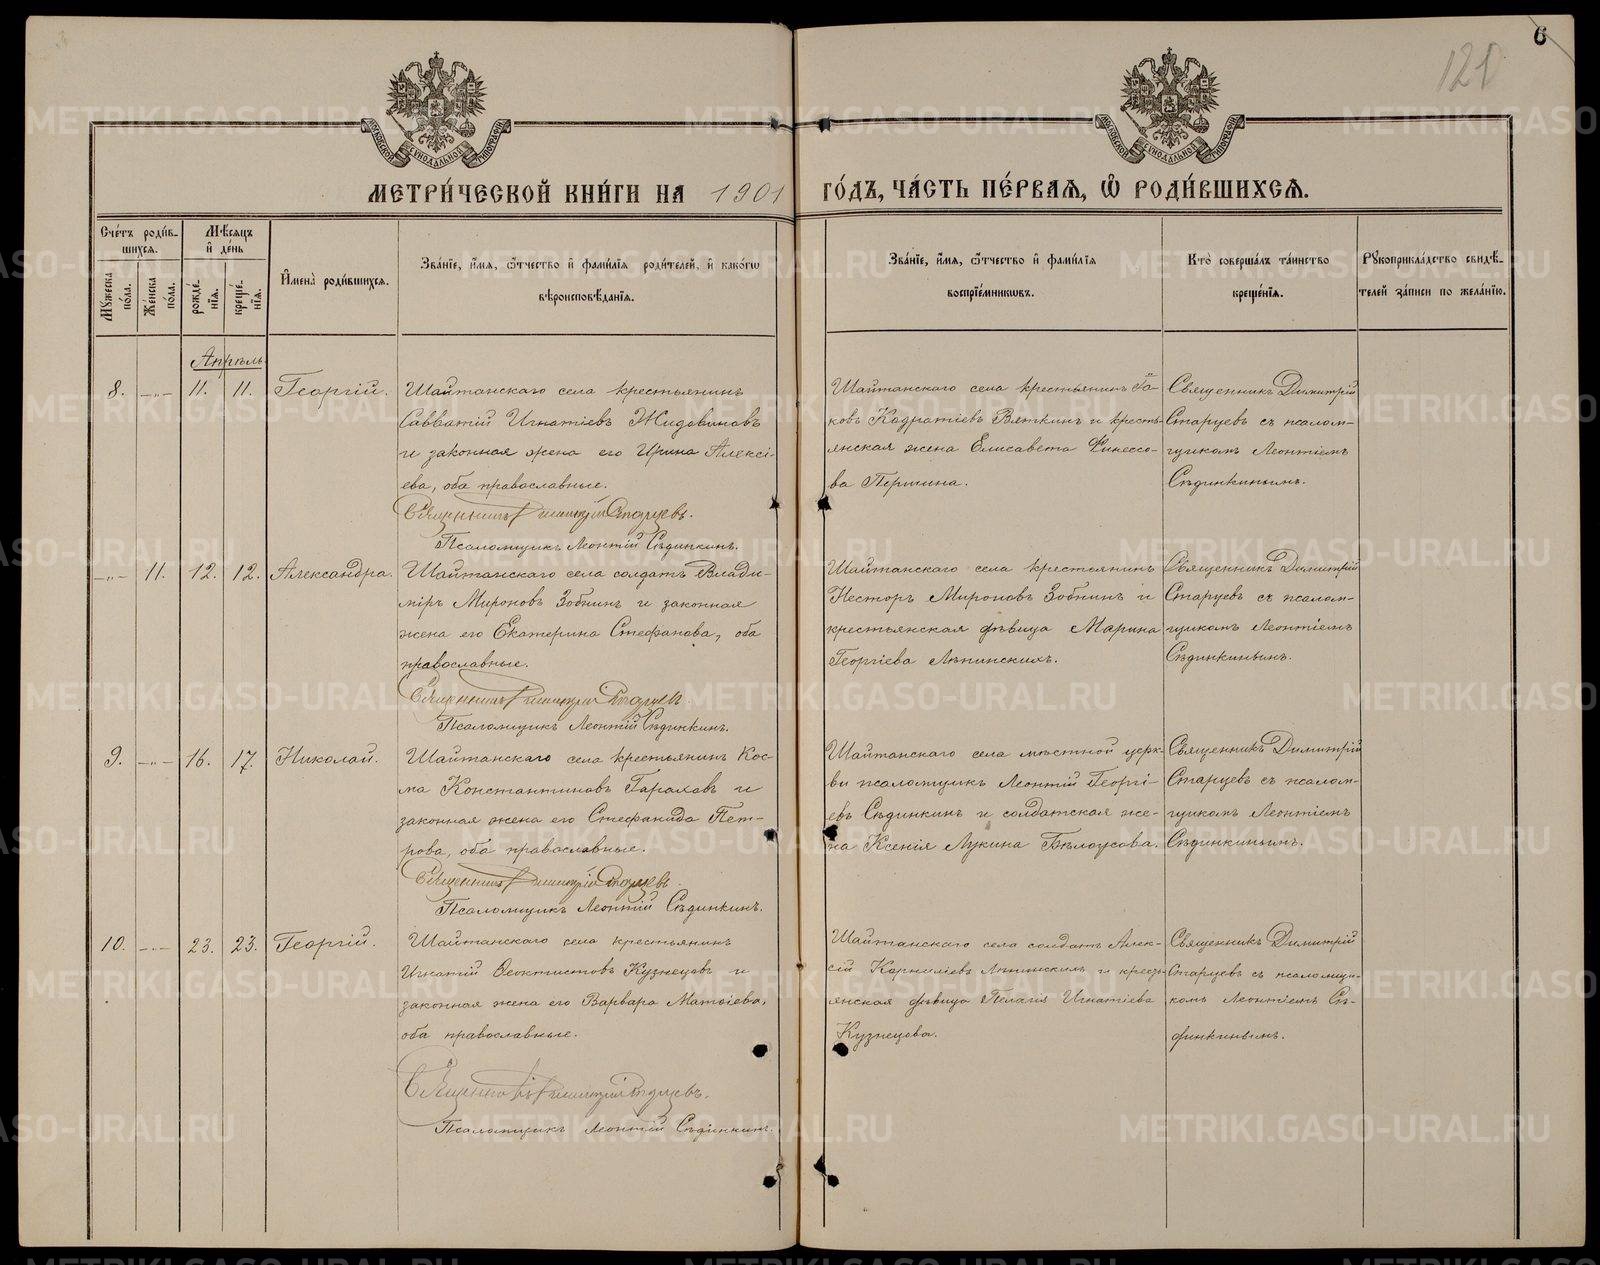 6
121
МОСКОВСКОЙ СѴНОДАЛЬНОЙ ТИПОГРАФІИ
МОСКОВСКОЙ СѴНОДАЛЬНОЙ ТИПОГРАФІИ
МЕТРИ́ЧЕСКОЙ КНИ́ГИ НА 1901 ГО́ДЪ, ЧА́СТЬ ПЕ́РВАѦ, Ѽ РОДИ́ВШИХСѦ.
Сче́тъ роди́в-
шихсѧ.
Мꙋжеска по́ла.
Же́нска по́ла.
Мѣ́сѧцъ
и҆ де́нь
рожде́-
нїѧ.
креще́-
нїѧ.
И҆мена̀ роди́вшихсѧ.
Зва́нїе, и҆́мѧ, ѻ҆́тчество и҆ фами́лїѧ роди́телей, и҆ како́гѡ
вѣроисповѣ́данїѧ.
Зва́нїе, и҆́мѧ, ѻ҆́тчество и҆ фами́лїѧ
воспрїе́мникѡвъ.
Кто̀ соверша́лъ та́инство
креще́нїѧ.
Рꙋкоприкла́дство свидѣ́-
телей за́писи по жела́нїю.
Апрѣль
8. -„- 11. 11. Георгій.
Шайтанскаго села крестьянинъ
Савватій Игнатіевъ Жидовиновъ
и законная жена его Ирина Алексі-
ева, оба православные.
Священникъ Димитрій Старцевъ.
Псаломщикъ Леонтій Сѣдинкинъ.
Шайтанскаго села крестьянинъ Іа-
ковъ Кодратіевъ Вяткинъ и кресть-
янская жена Елисавета Финессо-
ва Першина.
Священникъ Димитрій
Старцевъ съ псалом-
щикомъ Леонтіемъ
Сѣдинкинымъ.
-„- 11. 12. 12. Александра.
Шайтанскаго села солдатъ Влади-
міръ Мироновъ Зобнинъ и законная
жена его Екатерина Стефанова, оба
православные.
Священникъ Димитрій Старцевъ.
Псаломщикъ Леонтій Сѣдинкинъ.
Шайтанскаго села крестьянинъ
Несторъ Мироновъ Зобнинъ и
крестьянская дѣвица Марина
Георгіева Лѣпинскихъ.
Священникъ Димитрій
Старцевъ съ псалом-
щикомъ Леонтіемъ
Сѣдинкинымъ.
9. -„- 16. 17. Николай.
Шайтанскаго села крестьянинъ Кос-
ма Константиновъ Гараховъ и
законная жена его Стефанида Пет-
рова, оба православные.
Священникъ Димитрій Старцевъ
Псаломщикъ Леонтій Сѣдинкинъ.
Шайтанскаго села мѣстной церк-
ви псаломщикъ Леонтій Георгі-
евъ Сѣдинкинъ и солдатская же-
на Ксенія Лукина Бѣлоусова.
Священникъ Димитрій
Старцевъ съ псалом-
щикомъ Леонтіемъ
Сѣдинкинымъ.
10. -„- 23. 23. Георгій.
Шайтанскаго села крестьянинъ
Игнатій Ѳеоктистовъ Кузнецовъ и
законная жена его Варвара Матѳіева,
оба православные.
Священникъ Димитрій Старцевъ.
Псаломщикъ Леонтій Сѣдинкинъ.
Шайтанскаго села солдатъ Алек-
сій Корниліевъ Лѣпинскихъ и крест-
янская дѣвица Пелагія Игнатіева
Кузнецова.
Священникъ Димитрій
Старцевъ съ псаломщи-
комъ Леонтіемъ Сѣ-
динкинымъ.
METRIKI.GASO-URAL.RU